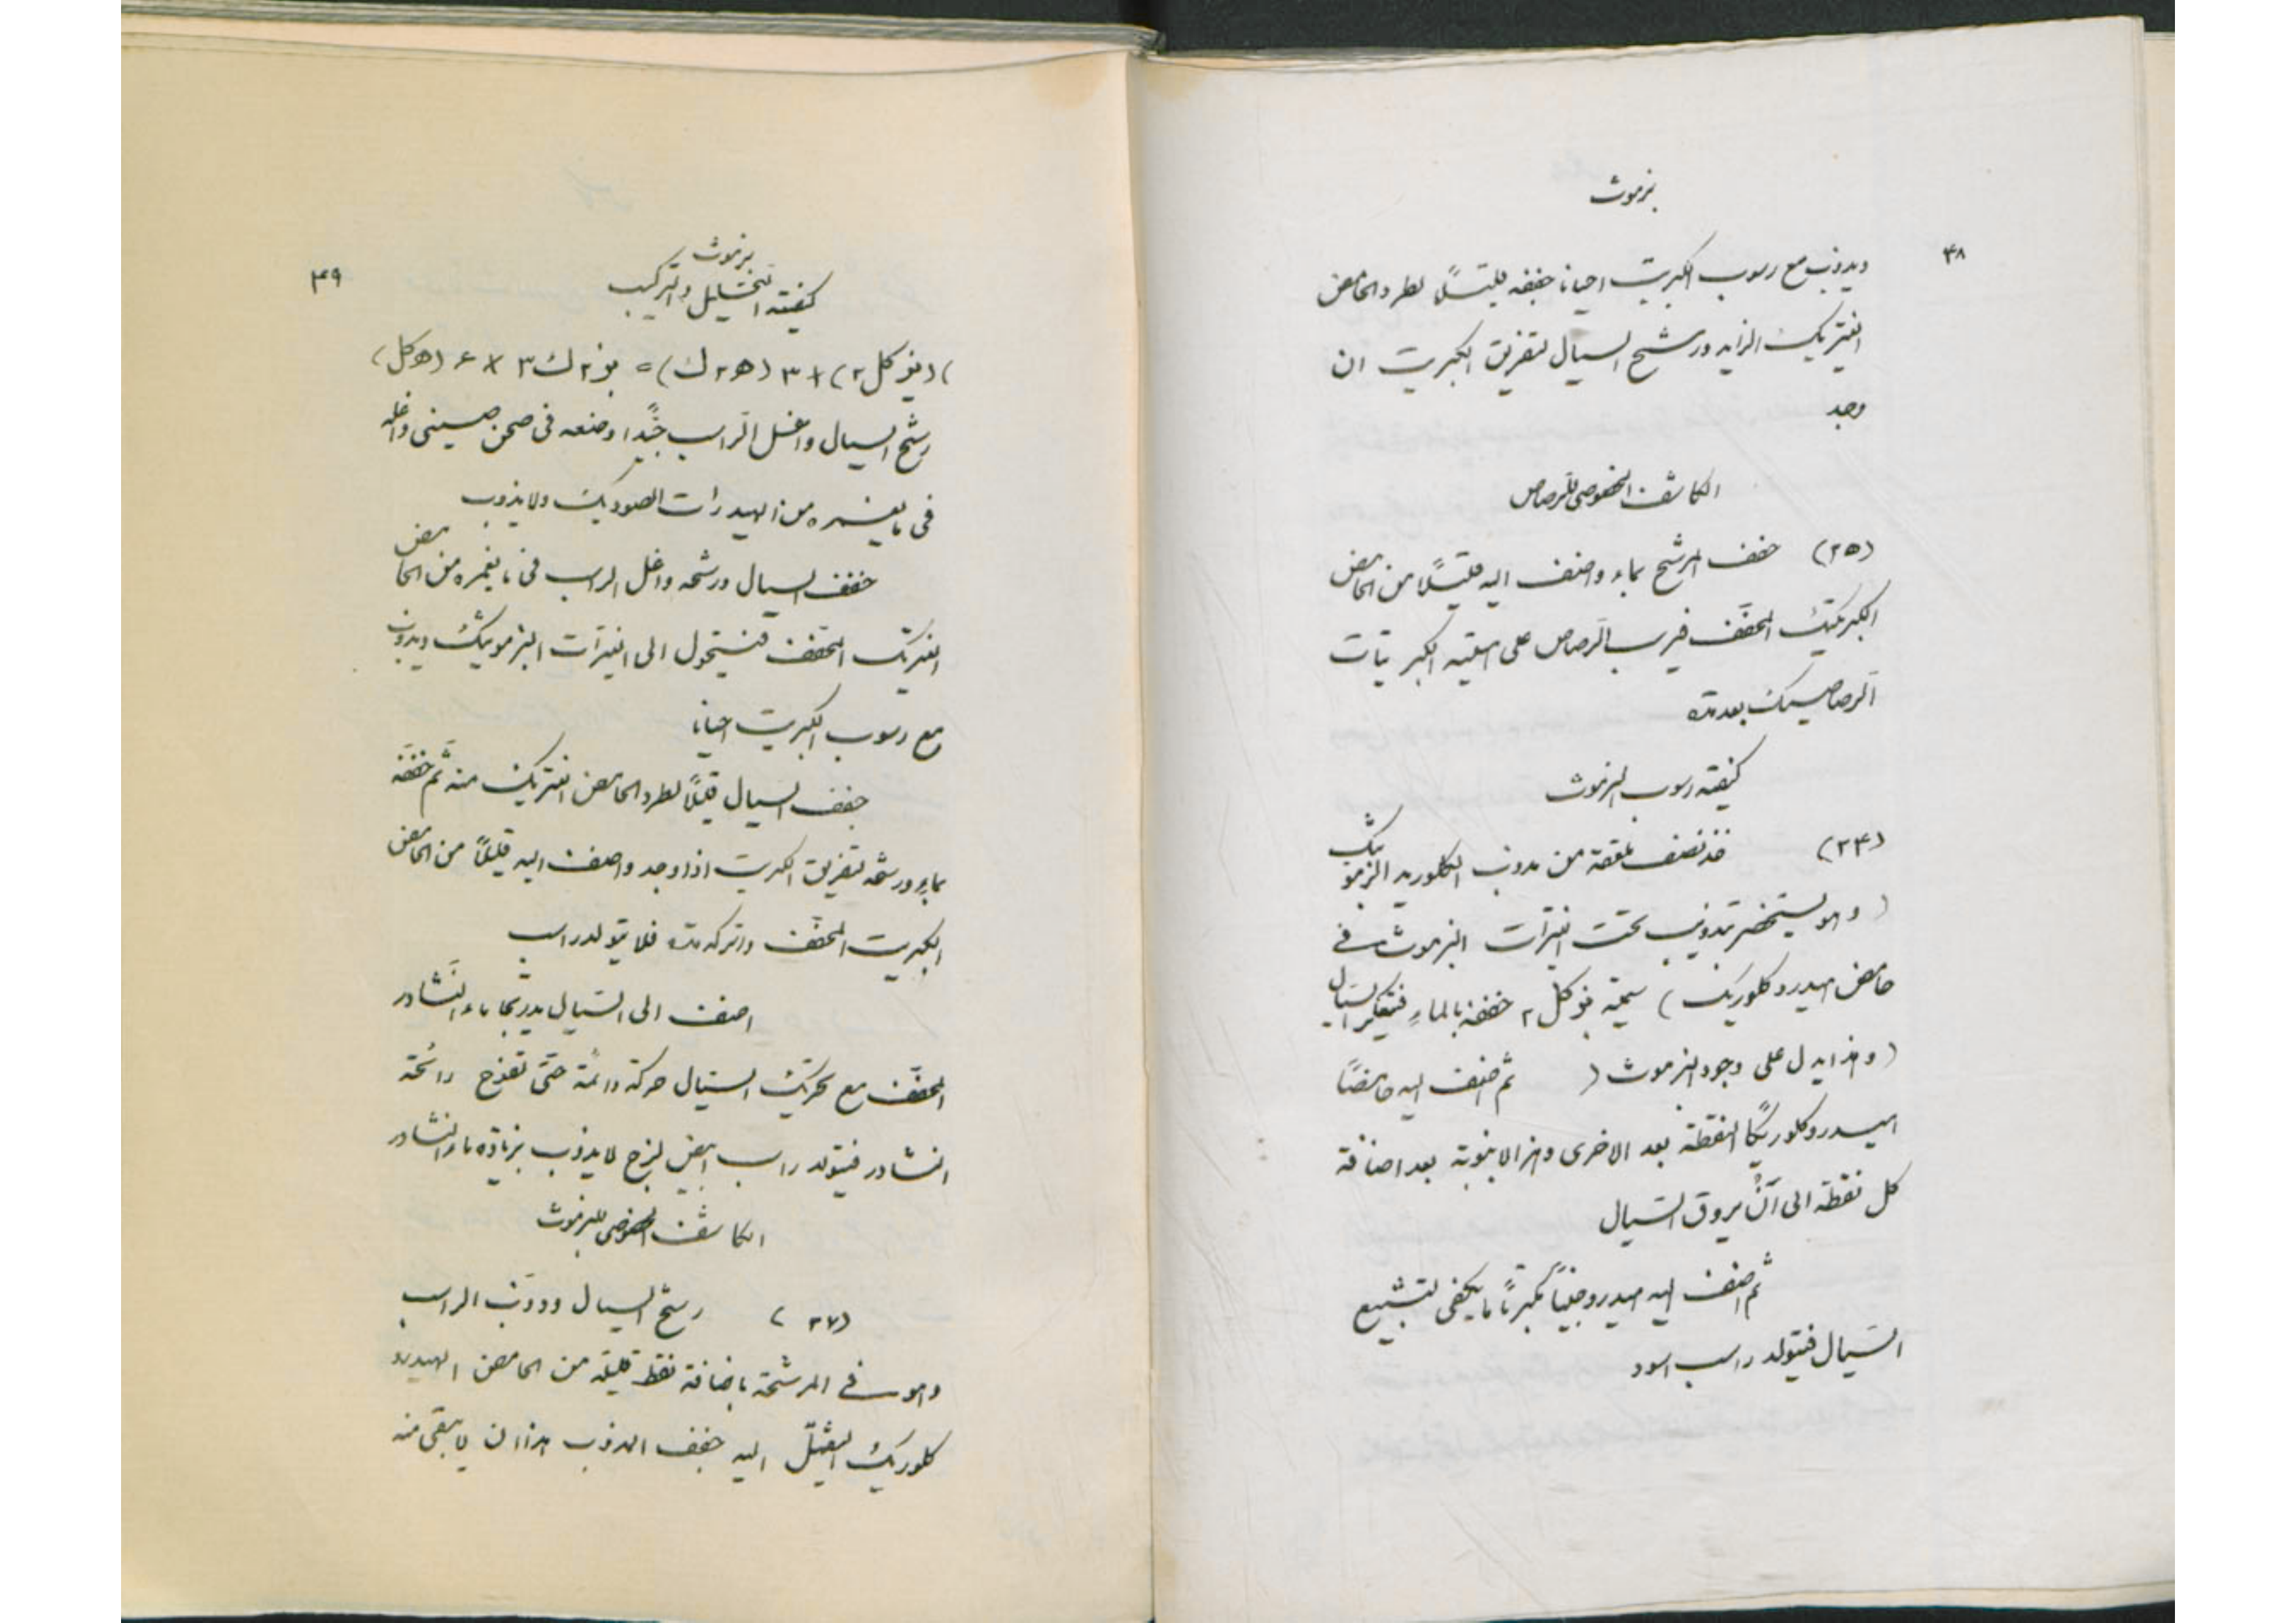 بزموث
٤٨
ويذوب مع رسوب الكبريت احيانا جففه قليلاً لطرد الحامض
النيتريك الزايد ورشح السيال لتفريق الكبريت ان
وجد
الكاشف الخصوصي للرصاص
(٢٥) خفف المرشح بماء واضف اليه قليلاً من الحامض
الكبريتيك المخفّف فيرسب الرصاص على هيئته الكبريتات
الرصاصيك بعد مدّه
كيفيّة رسوب البزموث
(٢٤) خذ نصف ملعقة من مذوب الكلوريد البزموتيك
(وهو يستحضر بتذويب تحت النيترات البزموث في
حامض هيدروكلوريك) سيمته بز كل ٢ خففه بالماءِ فيتعكر السيّال
(وهذا يدل على وجود البزموث) ثم اضف اليه حامضاً
هيدروكلوريكاً النقطة بعد الاخرى وهز الانبوبة بعد اضافة
كل نقطة الى اَنْ يروق السّيال
ثم اضف اليه هيدروجيناً مكبرتاً ما يكفي لتشبيع
السّيال فيتولد راسب اسود
بزموث
٤٩
كيفيّته التحّليل والتركيب
)(بز كل ٢) + ٣ (ه٢ ك) = بز٢ ك٣ + ٦ (ه كل)
رشح السيال واغسل الرّاسب جيّداً وضعه في صحن صيني واغله
في ما يغمره من الهيدرات الصوديك ولا يذوب
خفف السيال ورشحه واغل الراسب في ما يغمره من الحامض
النيتريك المخّفف فيستحول الى النيترات البزموتيك ويذوب
مع رسوب الكبريت احيانا
جفف السيال قليلاً لطرد الحامض النيتريك منه ثم خفّفه
بماءٍ ورشحه لتفريق الكبريت اذا وجد واضف اليه قليلاً من الحامض
الكبريت المخفّف واتركه مدّه فلا يتولد راسب
اضف الى السّيال بدريجا ماء النّشادر
المخفّف مع تحريك السّيال حركة دائمة حتّى تفوح رائحة
النشادر فيتولد راسب ابيض لزج لا يذوب بزيادة ماء النشادر
الكاشف الخصوصي للبزموث
(٢٧) رشح السيال وذوّب الراسب
وهو في المرشحة باضافة نقط قليلة من الحامض الهيدرو
كلوريك الثقيل اليه جفف المذوب هذا ان لا يبقى منه